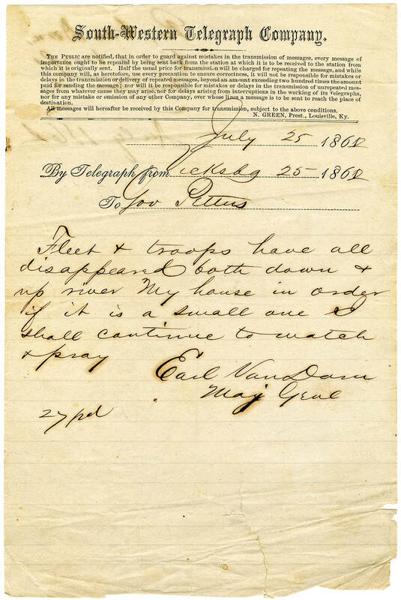 South-Western Telegraph Company.
THE PUBLIC are notified, that in order to guard against mistakes in the transmission of messages, every message of
importance ought to be repeated by being sent back from the station at which it is to be received to the station from
which it is originally sent. Half the usual price for transmission will be charged for repeating the message, and while
this company will, as heretofore, use every precaution to ensure correctness, it will not be responsible for mistakes or
delays in the transmission or delivery of repeated messages, beyond an amount exceeding two hundred times the amount
paid for sending the message; nor will it be responsible for mistakes or delays in the transmission of unrepeated messages
from whatever cause they may arise, nor for delays arising from interruptions in the working of its Telegraphs,
nor for any mistake or omission of any other Company, over whose lines a message is to be sent to reach the place of
destination.
All messages will hereafter be received by this Company for transmission, subject to the above conditions.
N. GREEN, Prest., Louisville, Ky.
July 25 1862
By Telegraph from Vicksbg 25 1862
To Gov Pettus
Fleet & troops have all
disappeard both down &
up river My house in order
if it is a small one I
shall continue to watch
& pray
Earl VanDorn
Maj Genl
27 pd